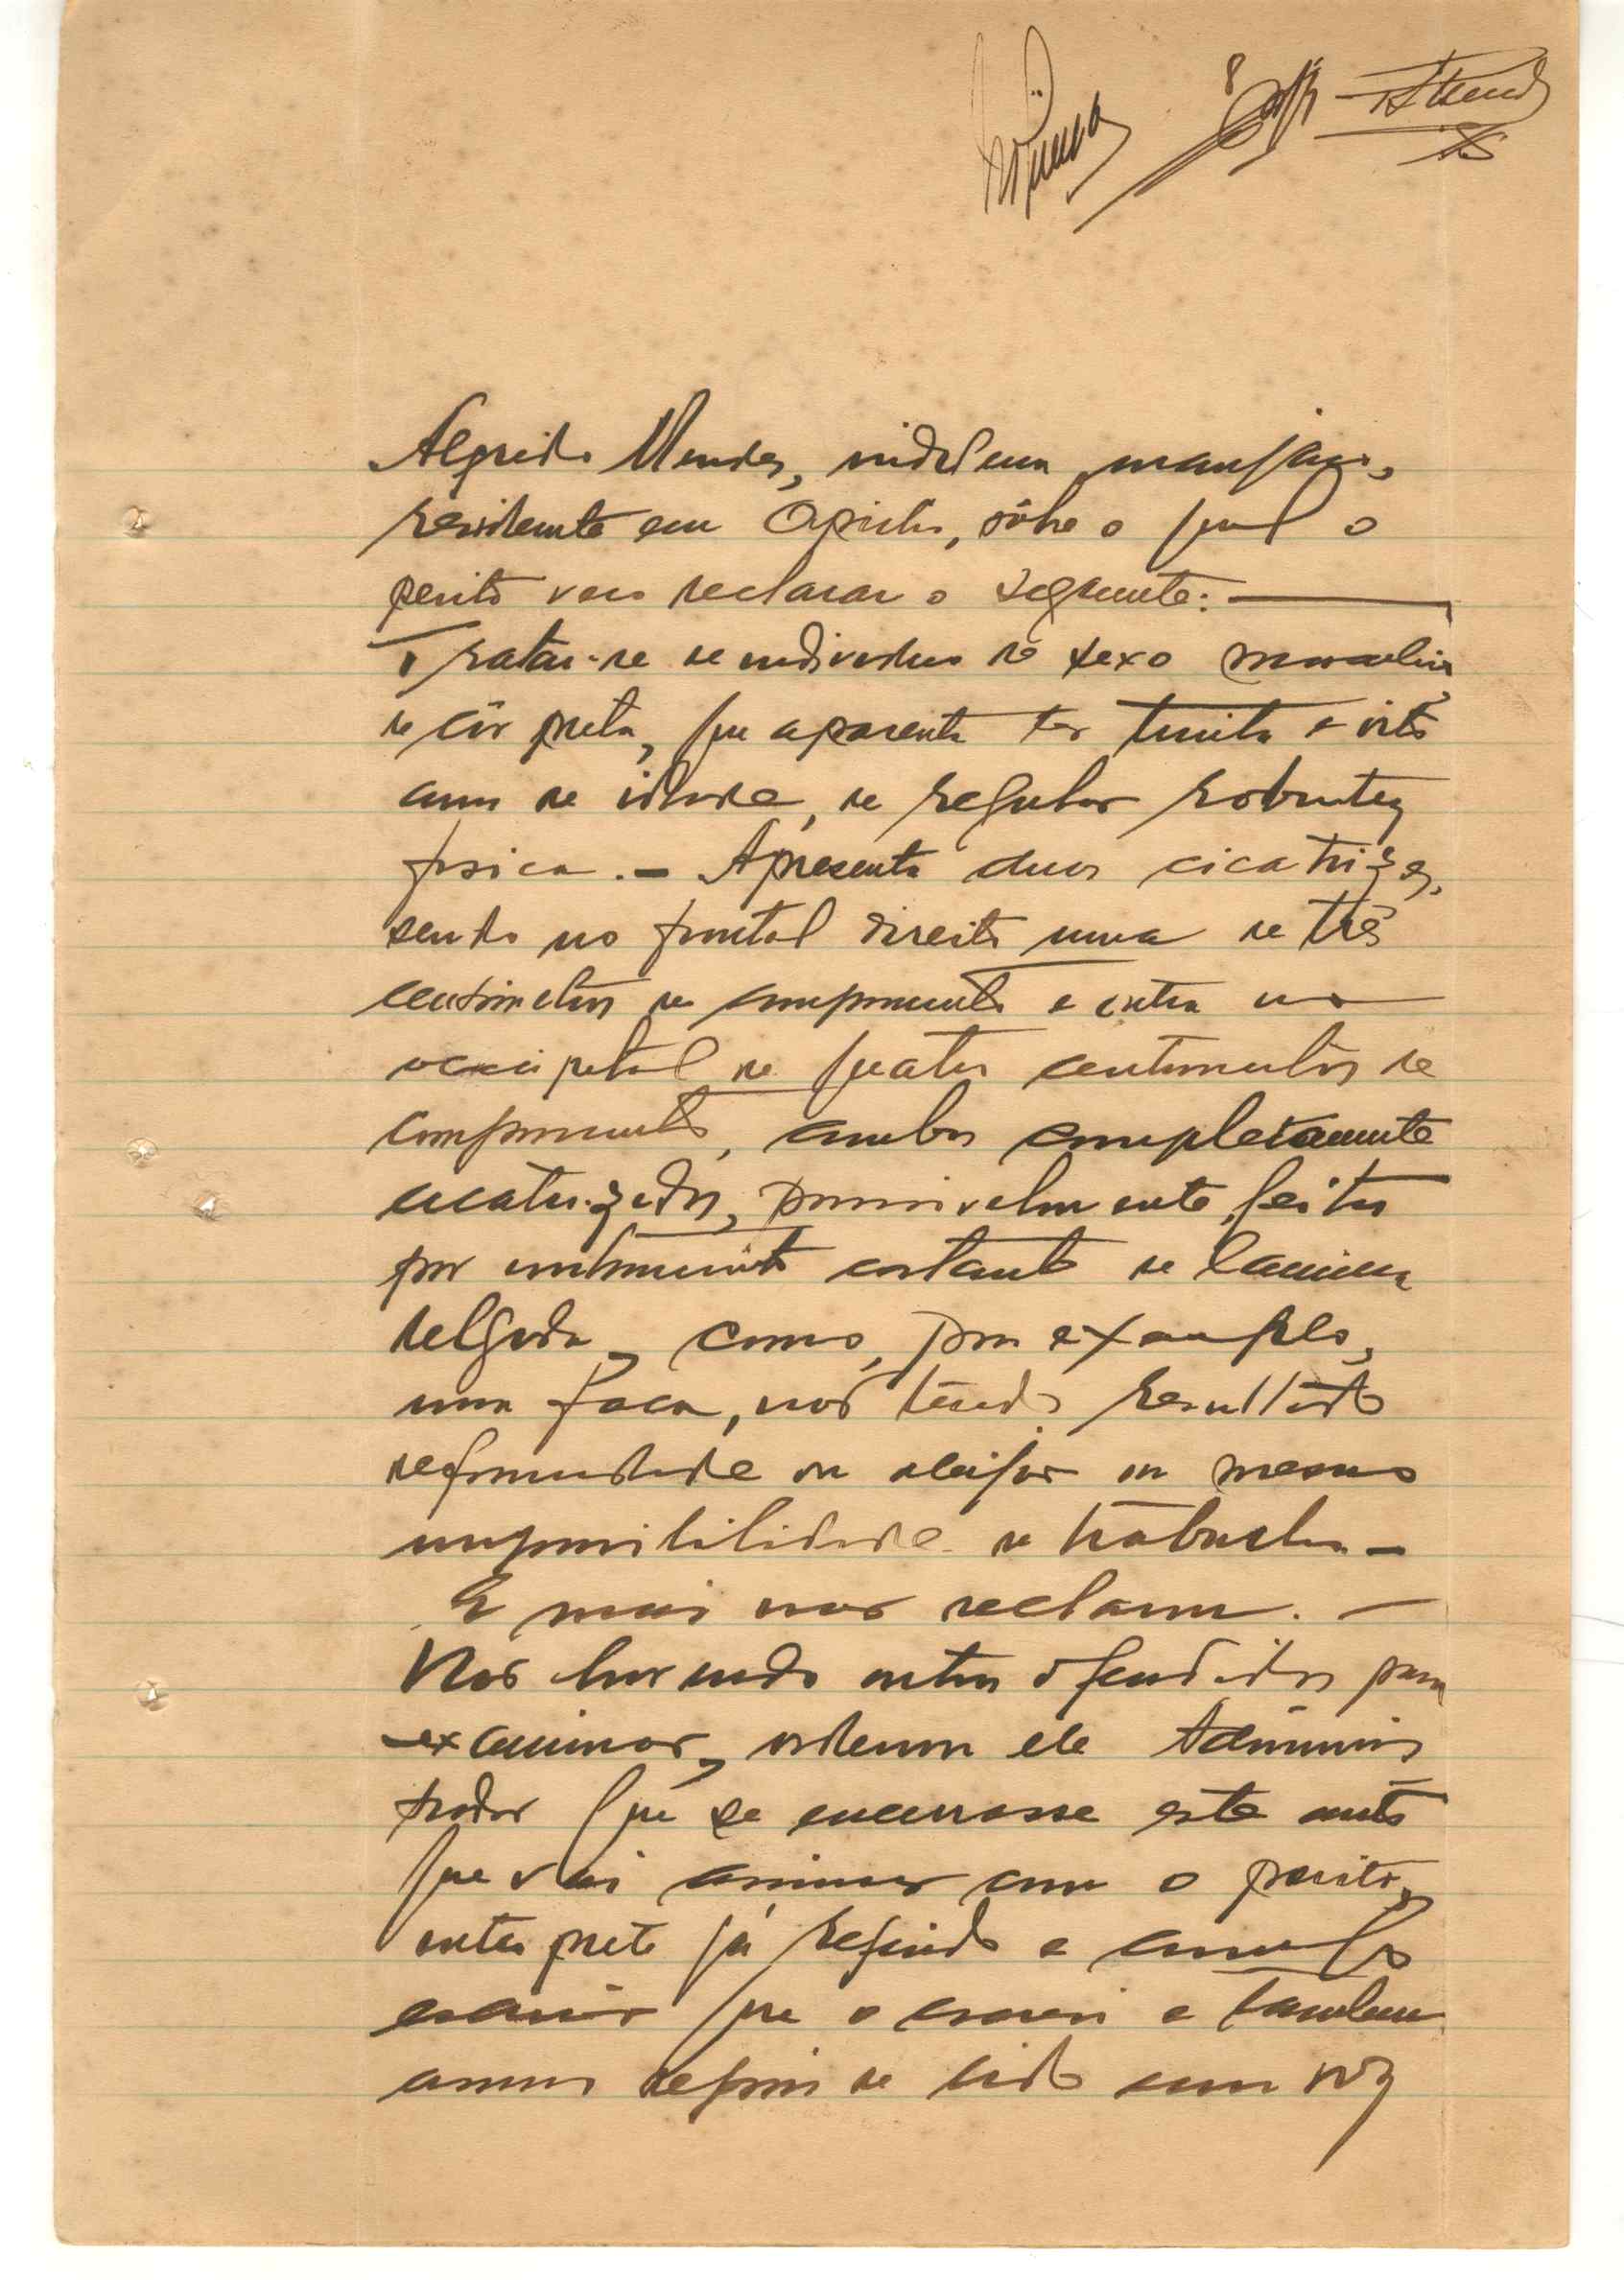 8
Alfredo Mendes, indigena manjaco,
residente em, sôbre o qual o
perito veio declarar o seguinte:
Tratar-se de individuo do sexo masculino
de côr preta, que aparenta ter trinta e oito
anos de idade, de regular robustez
fisica. - Apresenta duas cicatrizes,
sendo no frontal direito uma de três
centimetros de comprimento e outra no
occipital de quatro centimetros de
comprimento, ambas completamente
cicatrizadas, possivelmente feitas
por instrumento cortante de lamina
delgada, como, por exemplo,
uma faca, não tendo resultado
deformidade ou aleijão ou mesmo
impossibilidade de trabalho -
E mais não declarou. -
Não havendo outros ofendidos para
examinar, ordenou ele Adminis
trador que se encerrasse este auto
que vai assinar com o perito,
interprete já referido e comigo
escrivão que o escrevi e tambem
assino depois de lido em voz